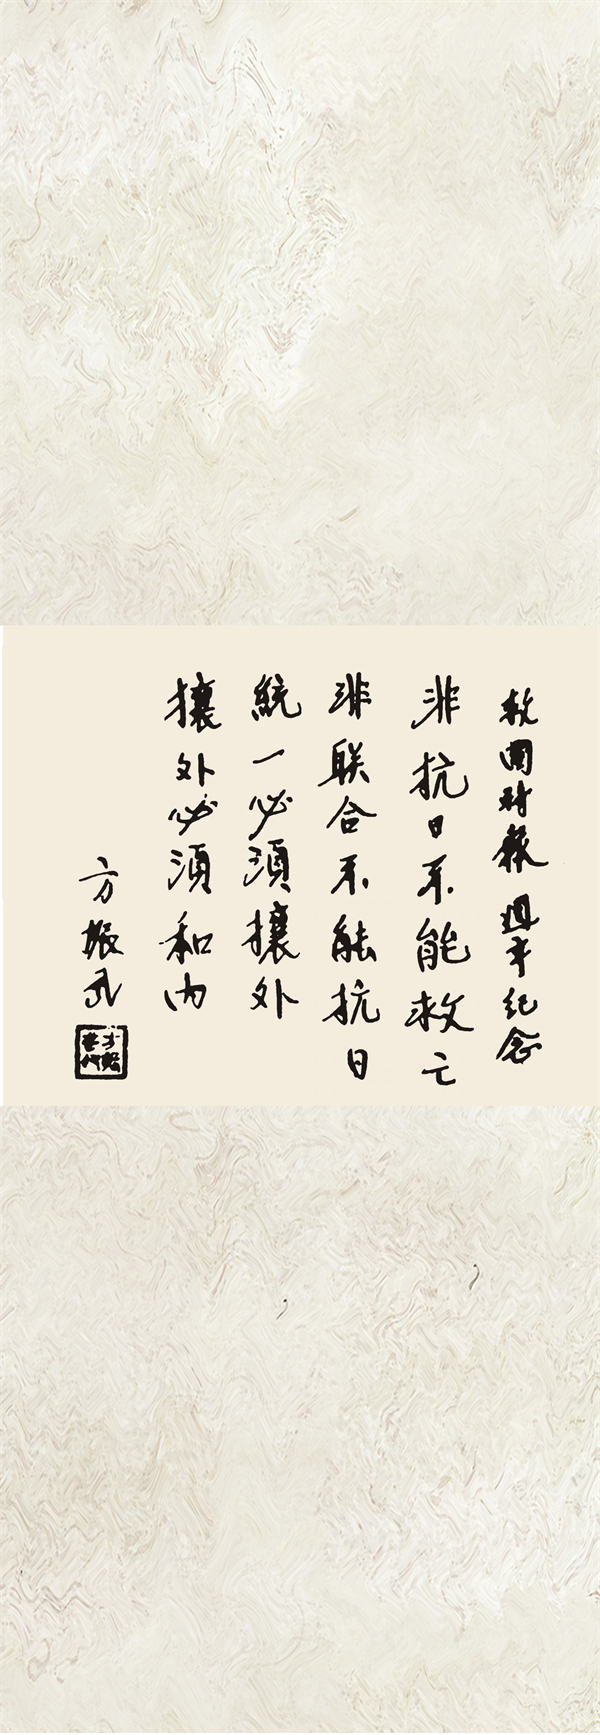 救國时報週年纪念
非抗日不能救亡
非联合不能抗日
統一必須攘外
攘外必須和内
方振武